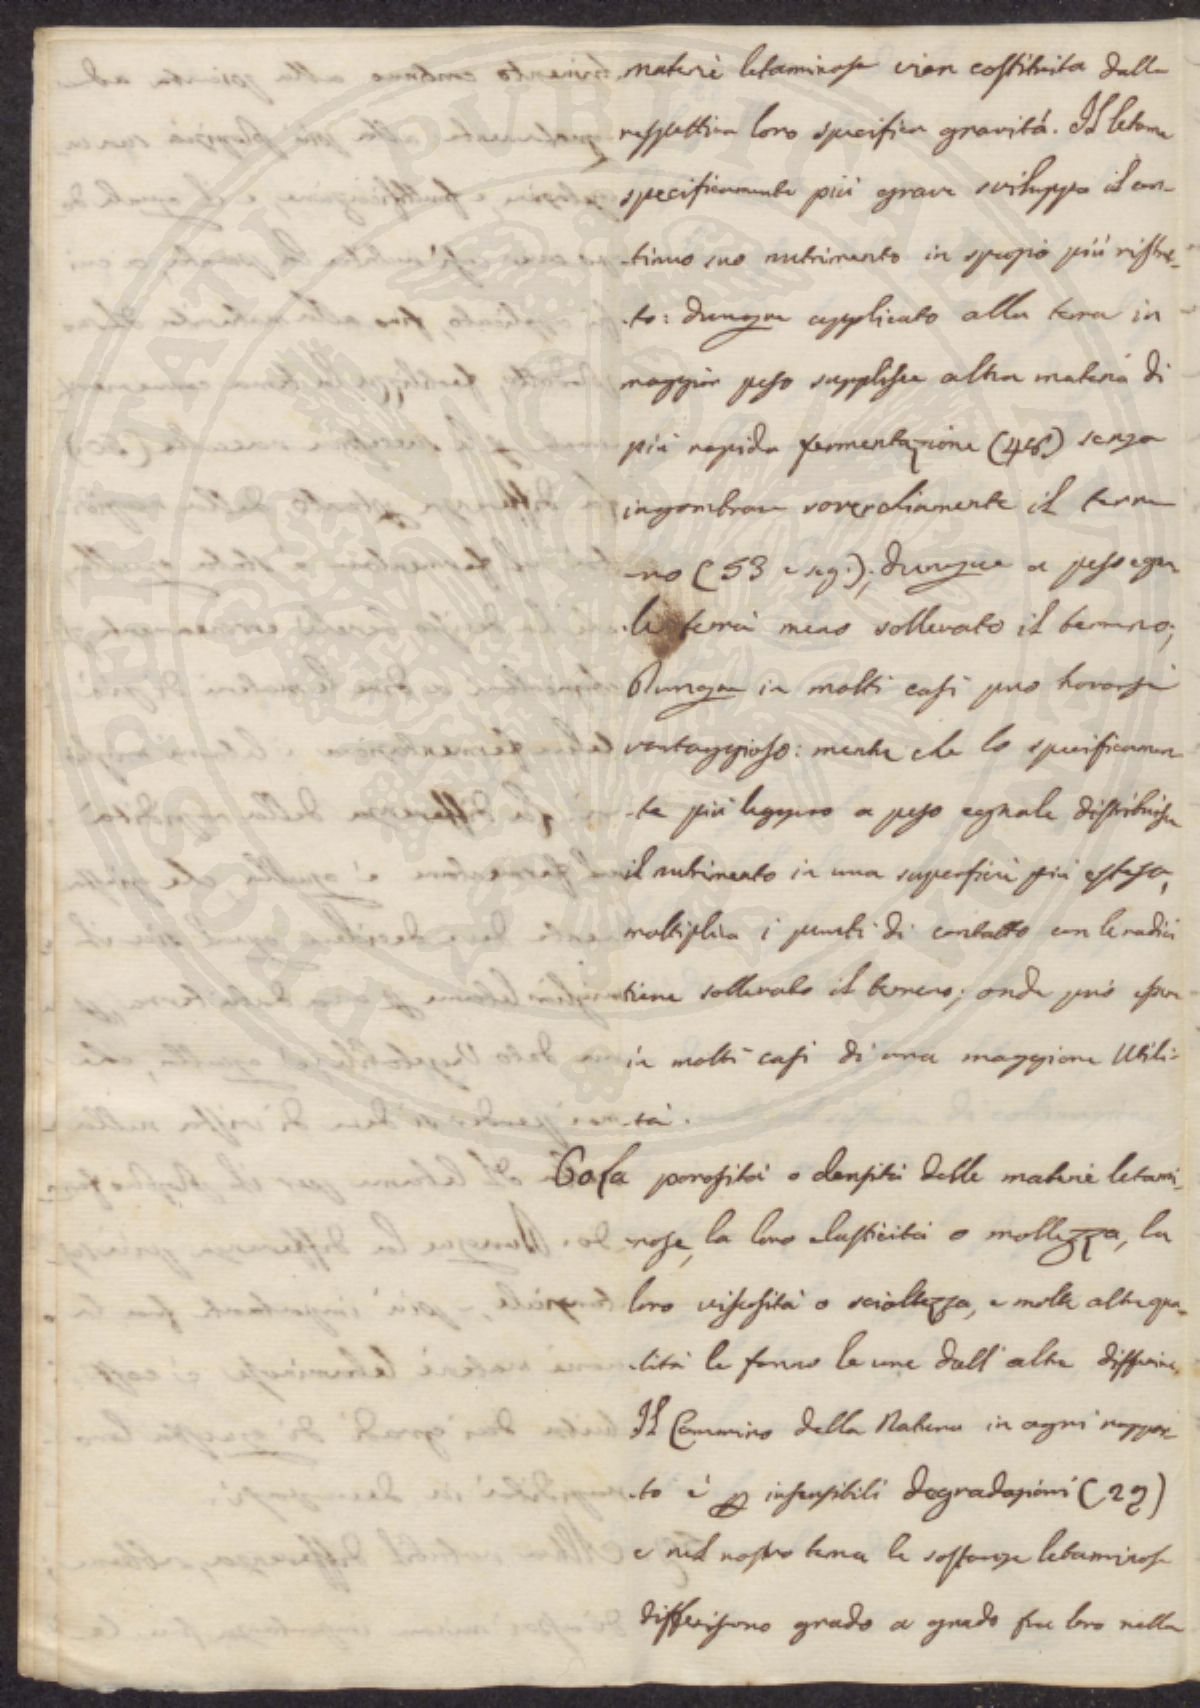 materie letaminose vien costituita dalla
respettiva loro specifica gravitá. Il letame
specificamente più grave sviluppa il con-
-tinuo suo nutrimento in spazio più ristre-
-to: dunque applicato alla terra in
maggior peso supplisce altra materia di
più rapida fermentazione (48) senza
ingombrare soverchiamente il terre
-no (53 e seg.); dunque a peso egua
-le terrà meno sollevato il terreno;
Dunque in molti casi può trovarsi
vantaggioso: mentre che lo specificamen
-te più leggero a peso eguale distribuisce
il nutrimento in una superficie più estesa,
moltiplica i punti di contatto con le radici
tiene sollevato il terreno; onde può esser
in molti casi di una maggiore Utili-
-tà.
60 La porosità o densità delle materie letami-
-nose, la loro elasticità o mollezza, la
loro viscosità o scioltezza, e molte altre qua-
-lità le fanno le une dall'altre differire.
Il Cammino della Natura in ogni rappor-
-to è p insensibili degradazioni (29)
e nel nostro tema le sostanze letaminose
differiscono grado a grado fra loro nella